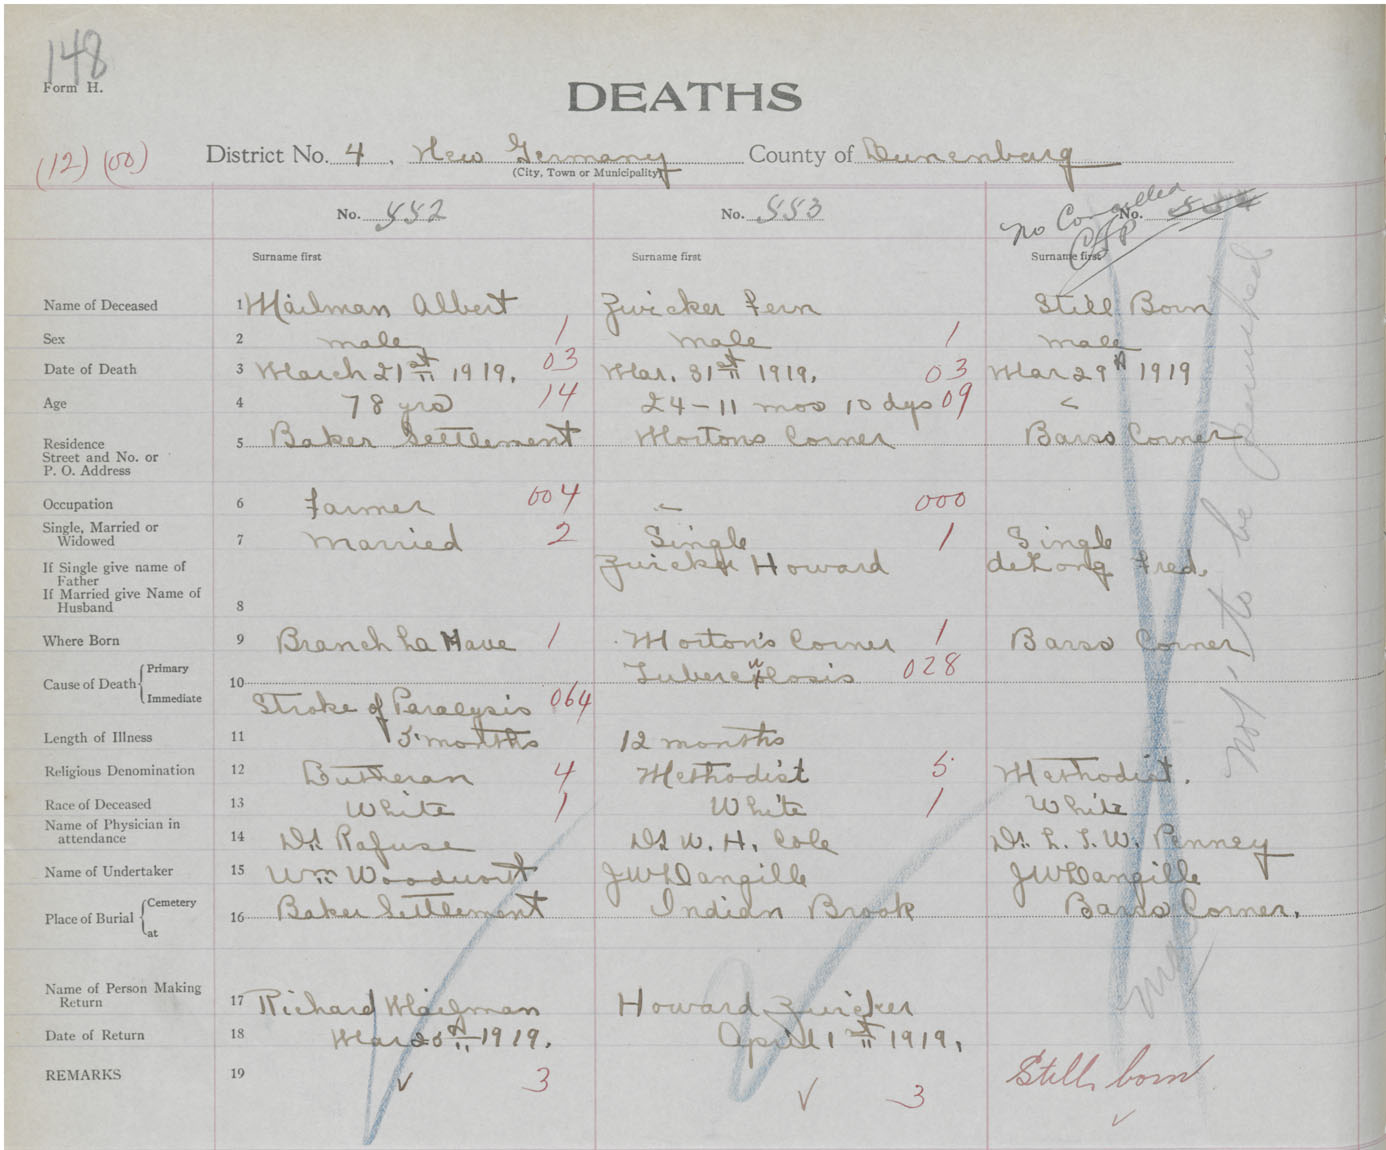 148
Form H.
DEATHS
(12) (00) District No. 4. New Germany County of Lunenburg
(City, Town or Municipality)
No. 552 No. 553 No Cancelled No.
Surname first Surname first Surname first
Name of Deceased 1 Mailman Albert Zwicker Fern Still Born
Sex 2 male 1 male 1 male
Date of Death 3 March 21st 1919. 03 Mar. 31st 1919. 03 Mar 29th 1919
Age 4 78 yrs 14 24-11 mos 10 dys 09
Residence 5 Baker Settlement Mortons Corner Barss Corner
Street and No. or
P. O. Address
Occupation 6 Farmer 004 000
Single, Married or
Widowed 7 Married 2 Single 1 Single
If Single give name of Zwicker Howard deLong Fred.
Father
If Married give Name of
Husband 8
Where Born 9 Branch La Have 1 Morton's Corner 1 Barss Corner
Cause of Death Primary 10 Tuberculosis 028
Immediate Stroke of Paralysis 064
Length of Illness 11 5 months 12 months
Religious Denomination 12 Lutheran 4 Methodist 5 Methodist.
Race of Deceased 13 White 1 White 1 White
Name of Physician in
attendance 14 Dr. Rafuse Dr W. H. Cole Dr. L. S. W. Penney
Name of Undertaker 15 Wm Woodworth J W Langille J W Langille
Place of Burial Cemetery 16 Baker Settlement Indian Brook Barss Corner.
at
Name of Person Making
Return 17 Richard Mailman Howard Zwicker
Date of Return 18 Mar 25th 1919. April 1st 1919.
REMARKS 19 3 3 Still born
Not to be punched